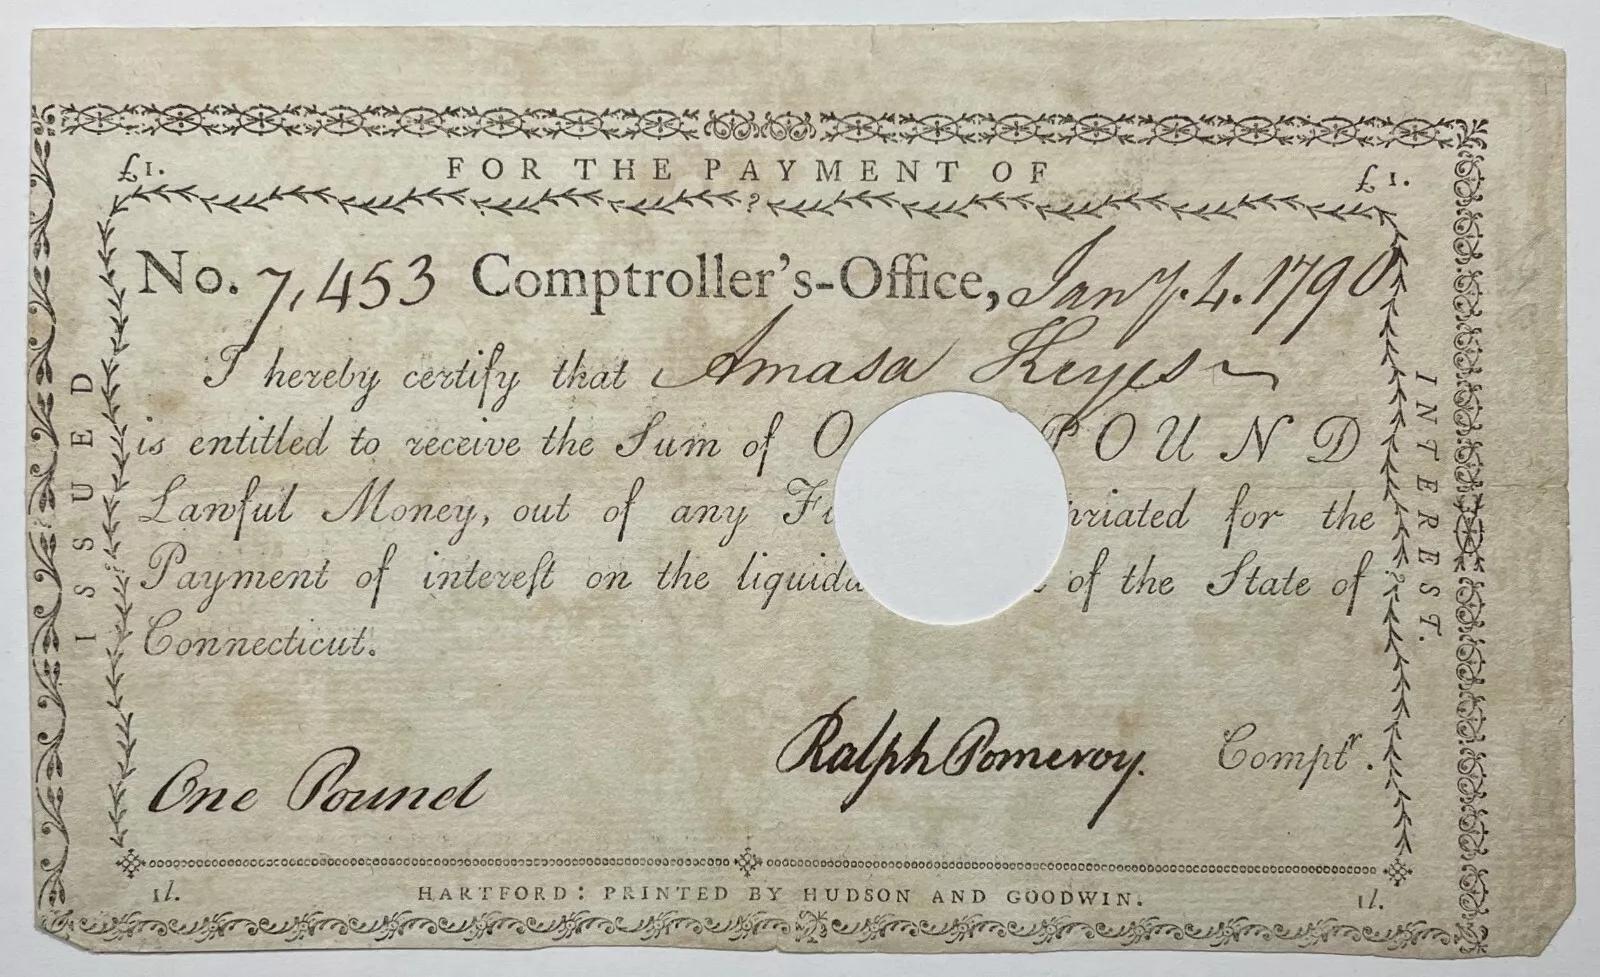 FOR THE PAYMENT OF
£1.
£1.
ISSUED
INTEREST.
No. 7,453 Comptroller's-Office, Jany. 4. 1790
I hereby certify that Amasa Keyes
is entitled to receive the Sum of POUND
Lawful Money, out of any for the
Payment of intereſt on the of the State of
Connecticut.
Ralph Pomeroy. Comptr.
One Pound
1l.
HARTFORD: PRINTED BY HUDSON AND GOODWIN.
1l.